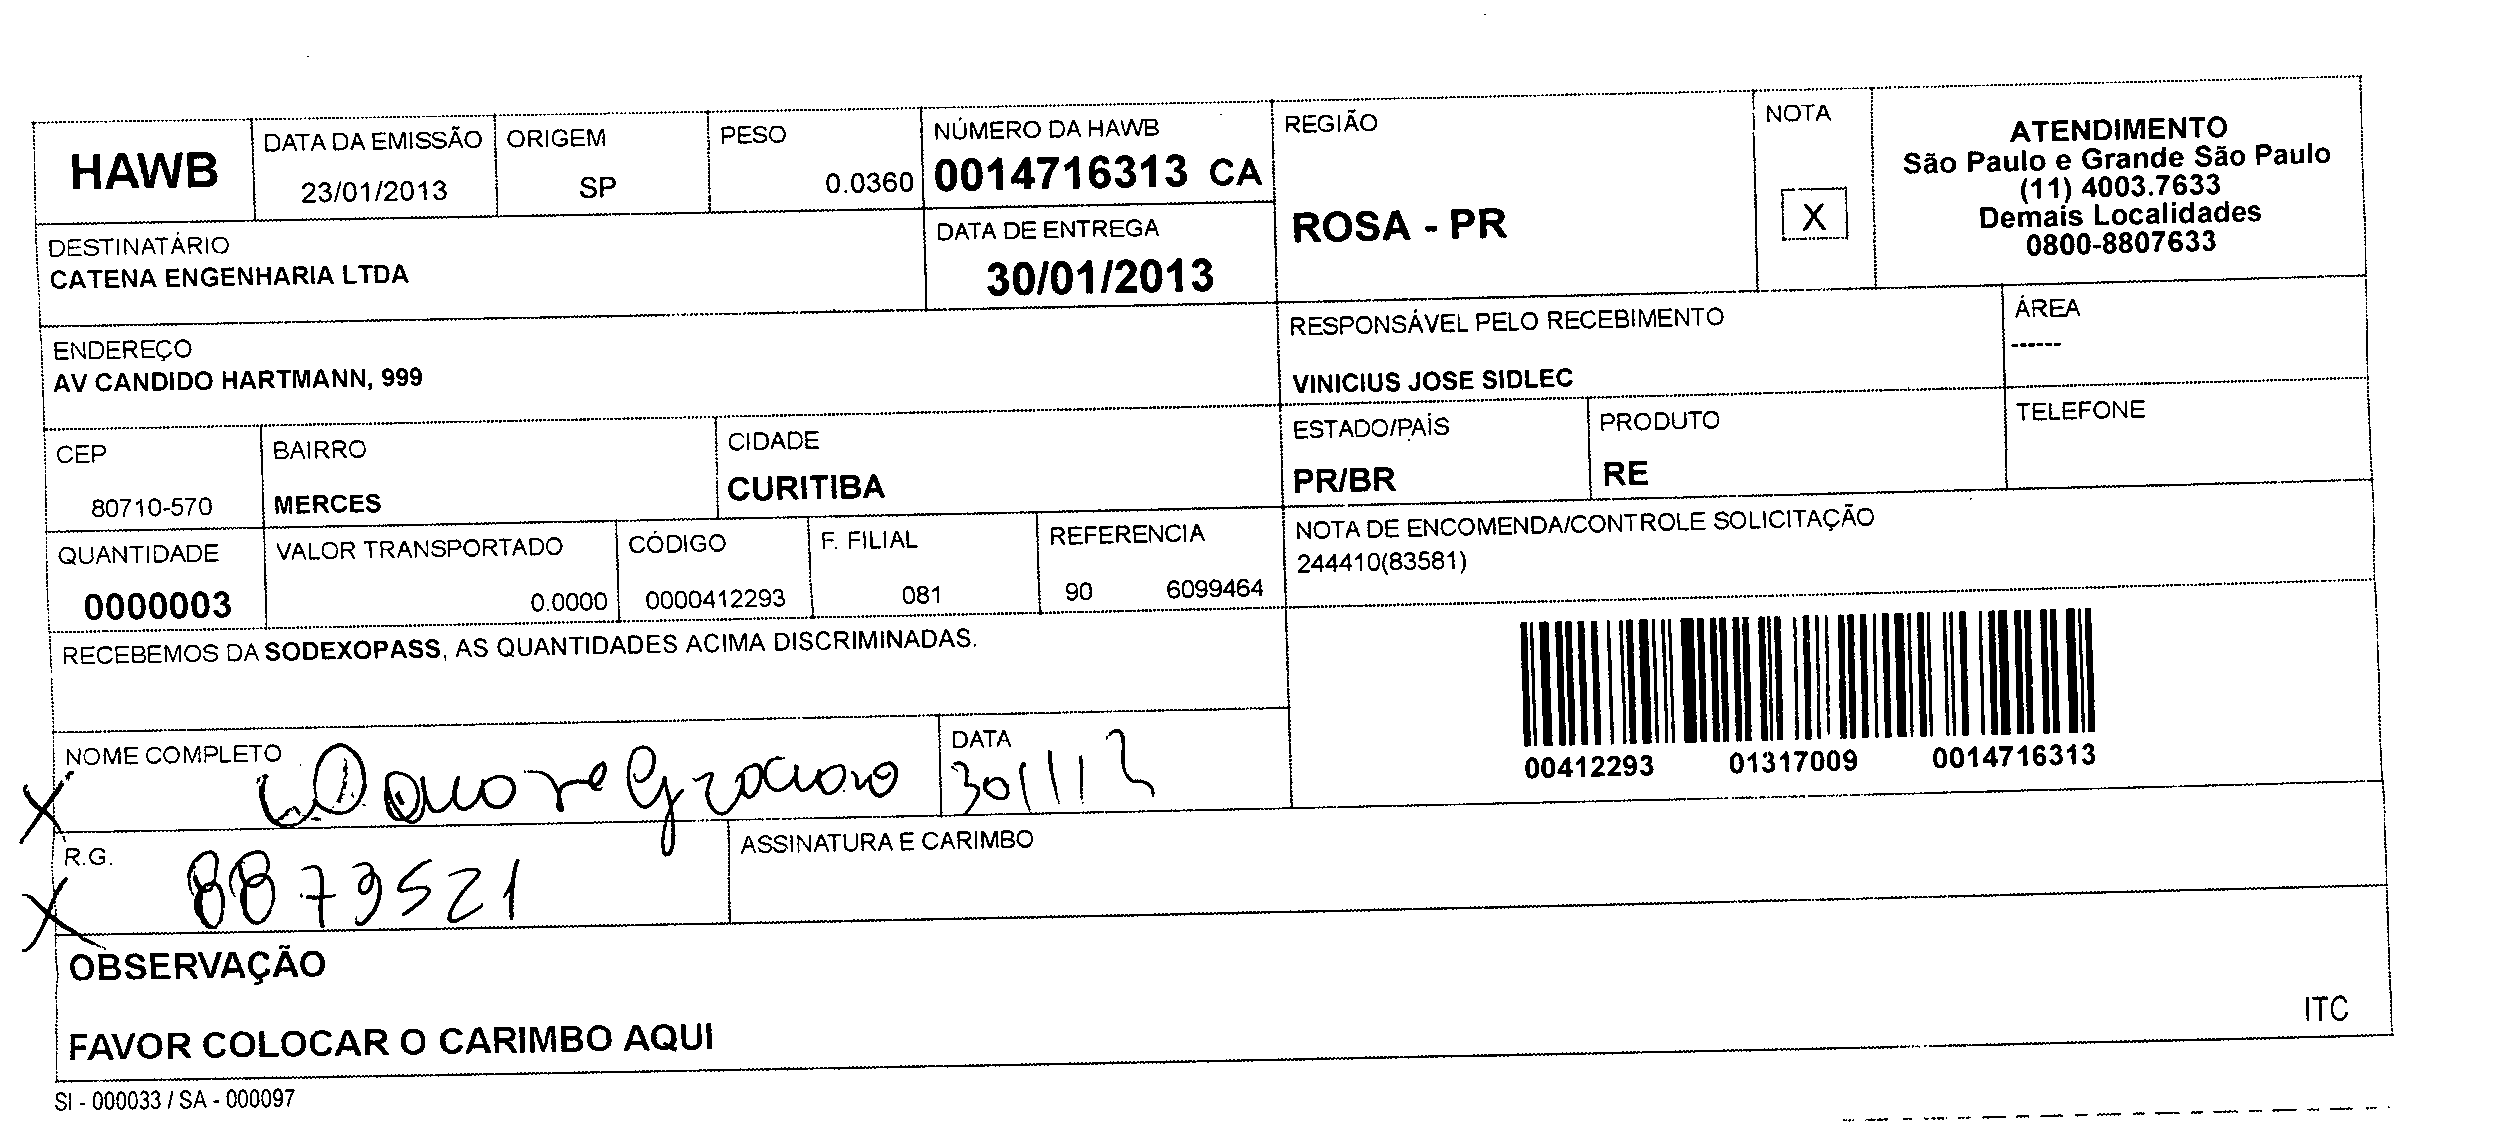 HAWB
DATA DA EMISSÃO
23/01/2013
ORIGEM
SP
PESO
0.0360
NÚMERO DA HAWB
0014716313 CA
REGIÃO
ROSA - PR
NOTA
X
ATENDIMENTO
São Paulo e Grande São Paulo
(11) 4003.7633
Demais Localidades
0800-8807633
DESTINATÁRIO
CATENA ENGENHARIA LTDA
DATA DE ENTREGA
30/01/2013
ENDEREÇO
AV CANDIDO HARTMANN, 999
RESPONSÁVEL PELO RECEBIMENTO
VINICIUS JOSE SIDLEC
ÁREA
------
CEP
80710-570
BAIRRO
MERCES
CIDADE
CURITIBA
ESTADO/PAÍS
PR/BR
PRODUTO
RE
TELEFONE
QUANTIDADE
0000003
VALOR TRANSPORTADO
0.0000
CÓDIGO
0000412293
F. FILIAL
081
REFERENCIA
90 6099464
NOTA DE ENCOMENDA/CONTROLE SOLICITAÇÃO
244410(83581)
RECEBEMOS DA SODEXOPASS, AS QUANTIDADES ACIMA DISCRIMINADAS.
00412293 01317009 0014716313
NOME COMPLETO
DATA
30/1/13
R.G.
8873521
ASSINATURA E CARIMBO
OBSERVAÇÃO
FAVOR COLOCAR O CARIMBO AQUI
ITC
SI - 000033 / SA - 000097